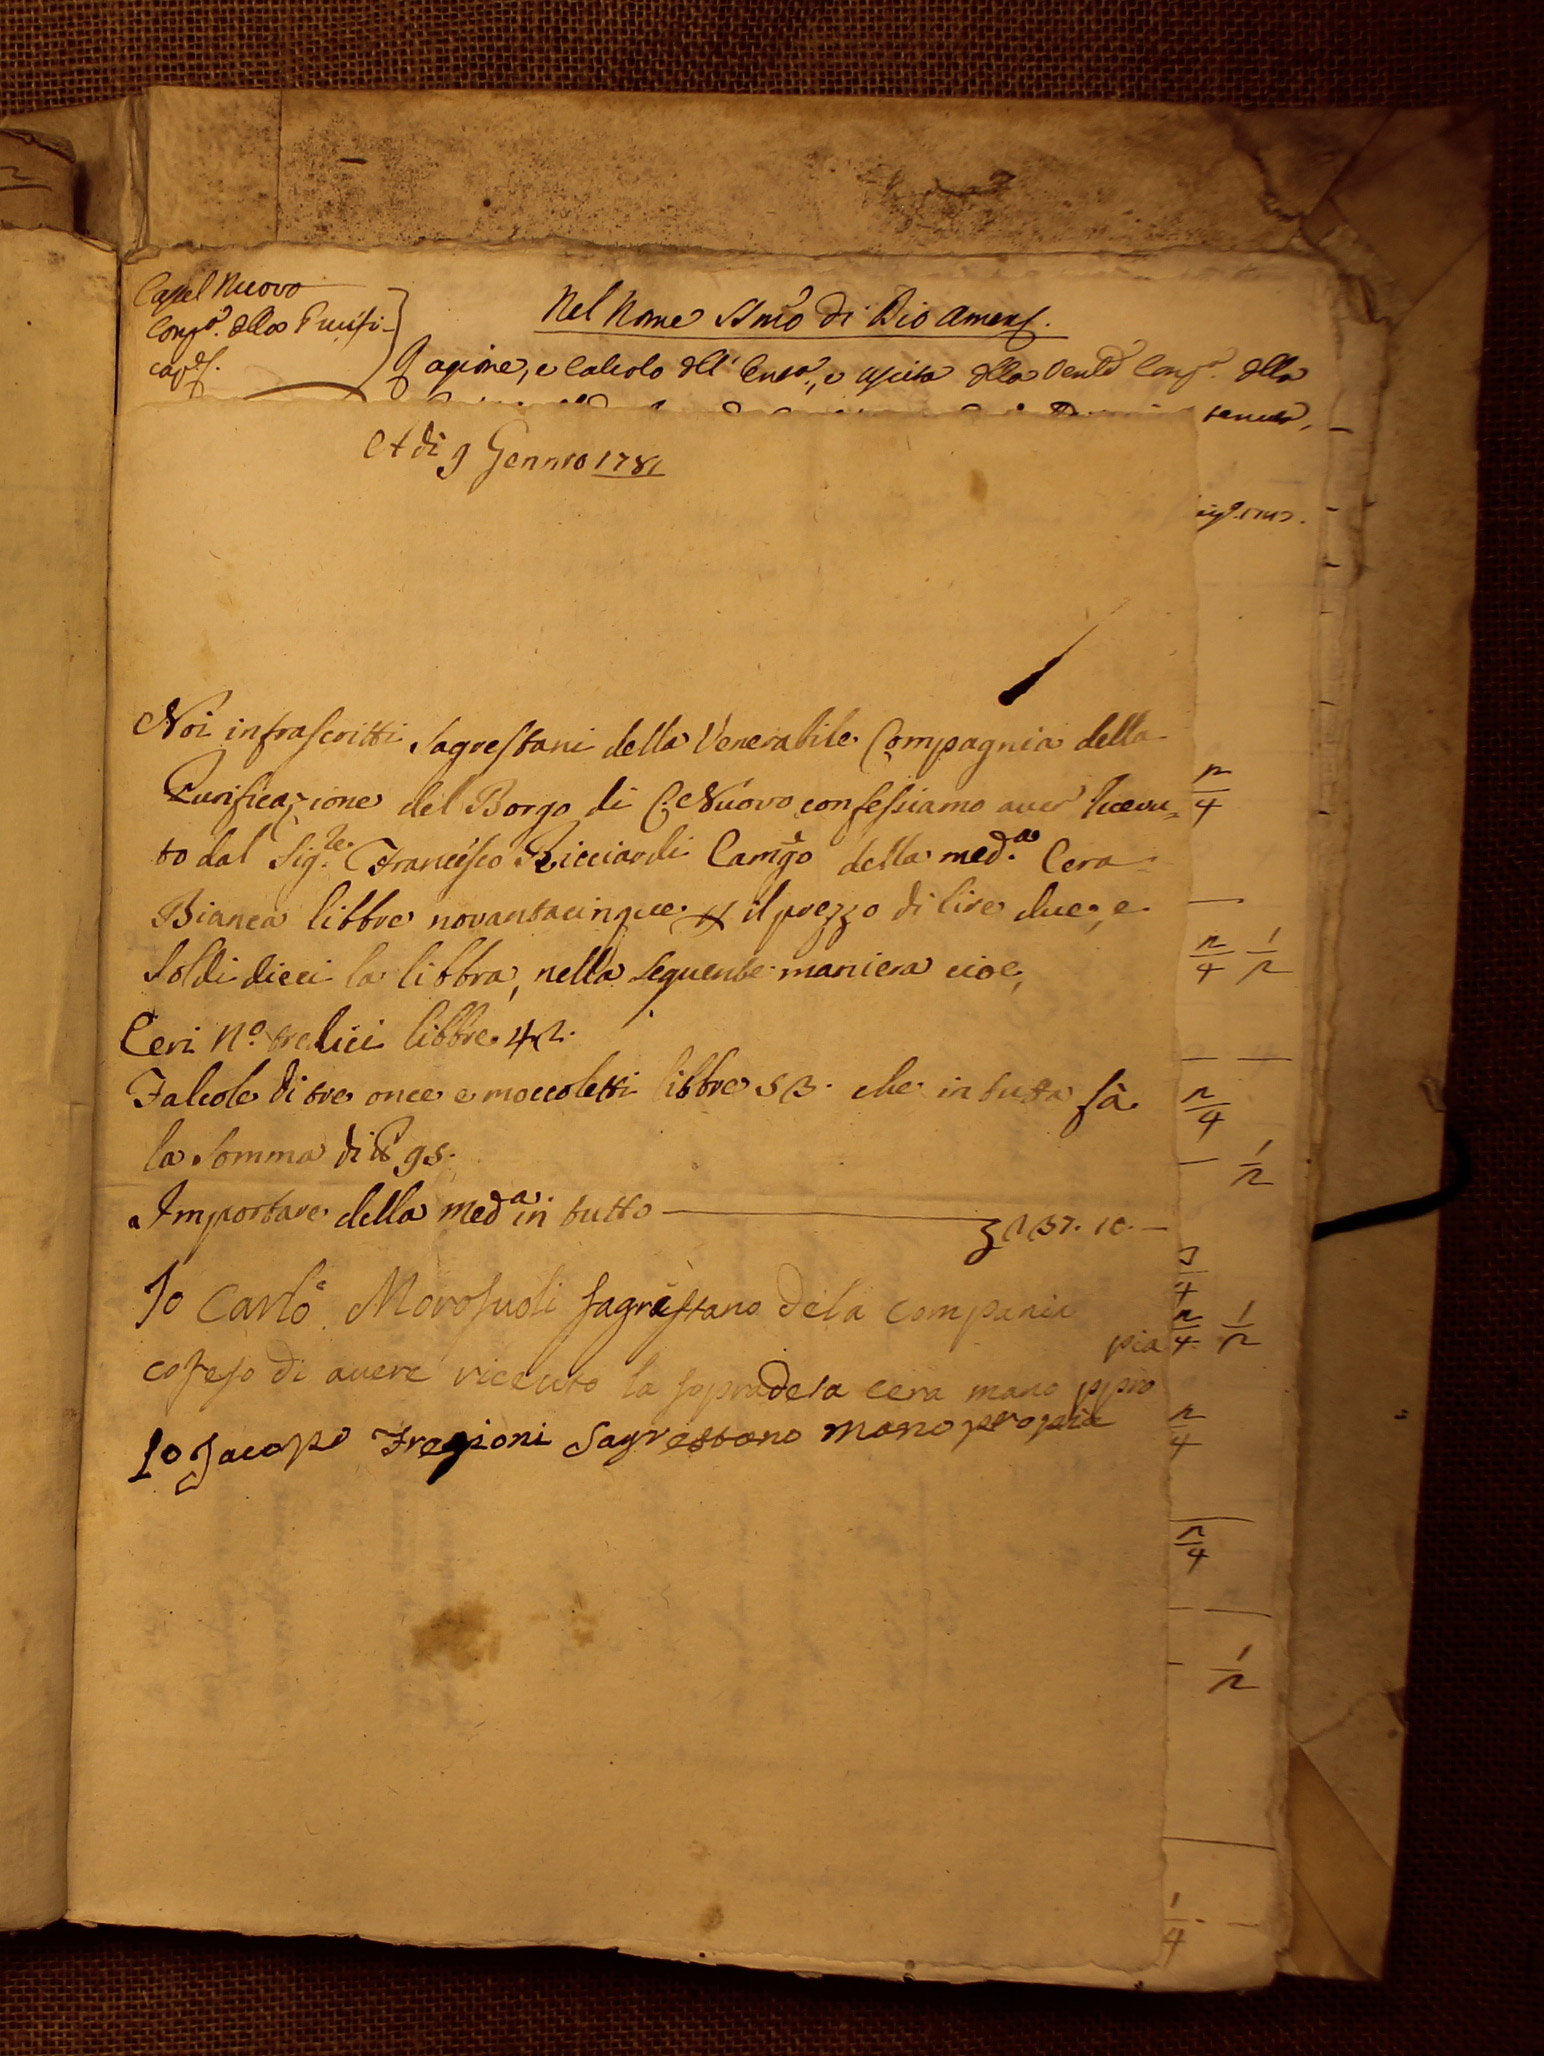 Castel Nuovo
Comp.ª della Purifi-
caz.e
Nel Nome SSmo di Dio Amen.
Ragione, e Calcolo dell' Entra., e uscita della Venle Comp.ª della
tenuta,
A di 9 Gennro 1781
Noi infrascritti Sagrestani della Venerabile Compagnia della
Purificazione del Borgo di C. Nuovo confessiamo aver riceuu-
to dal Sig.re Francesco Ricciardi Camgo della med.ª Cera
Bianca libbre novantacinque p il prezzo di lire due, e
Soldi dieci la libbra, nella seguente maniera cioe,
Ceri N.º tredici libbre 42.
Falcole di tre once e moccoletti libbre 53. che in tutto fà
la Somma di lb 95.
Importare della med.ª in tutto — 237. 10. —
Io Carlo Morosuoli sagrestano dela compania
cofeso di avere riceuto la sopradeta cera mano ppro
pia
Io Jacopo Fregioni Sagrestano mano propia
2/4
2/4 1/2
2/4
1/2
3/4
2/4 1/2
2/4
2/4
1/2
1/4